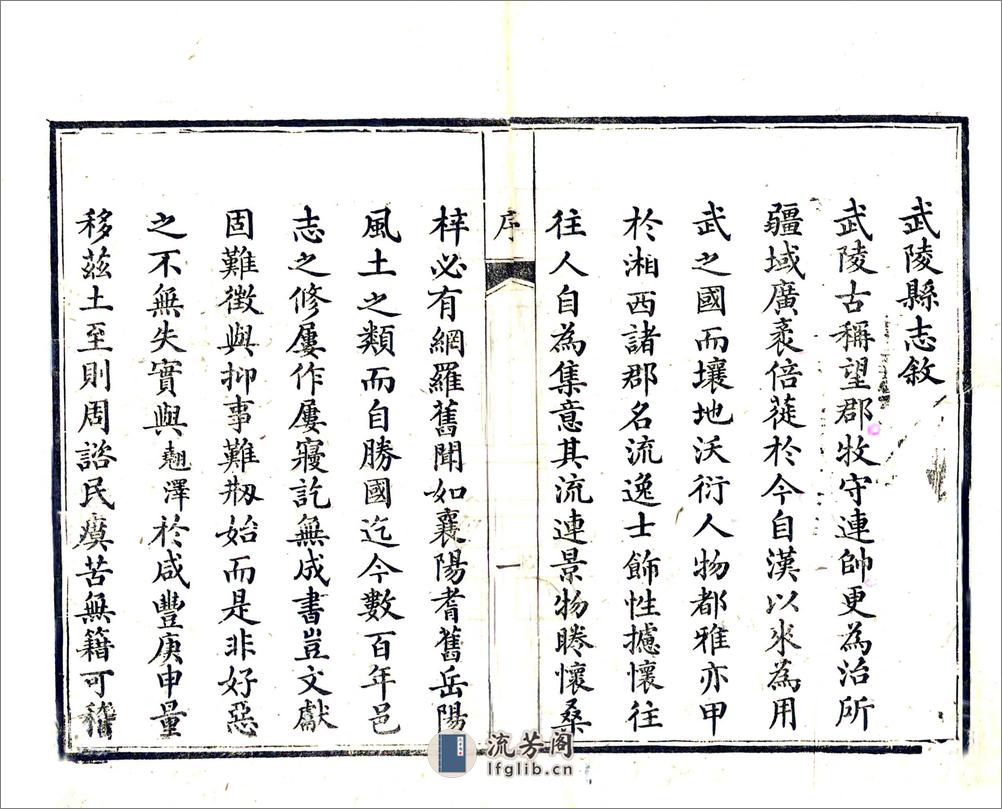 武陵縣志敘
武陵古稱望郡牧守連帥更為治所
疆域廣袤倍蓰於今自漢以來為用
武之國而壤地沃衍人物都雅亦甲
於湘西諸郡名流逸士飾性攄懷往
往人自為集意其流連景物睠懷桑
序
一
梓必有網羅舊聞如襄陽耆舊岳陽
風土之類而自勝國迄今數百年邑
志之修屢作屢寢訖無成書豈文獻
固難徵與抑事難刱始而是非好惡
之不無失實與翹澤於咸豐庚申量
移茲土至則周諮民瘼苦無籍可稽
流芳阁
lfglib.cn